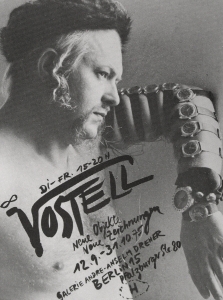 Di-FR. 15-20H
∞
VOSTELL
neue Objekte
neue Zeichnungen
12.9.-31.10.75
GALERIE ANDRE-ANSELM DREHER
BERLIN 15
Pfalzburgerstr. 20